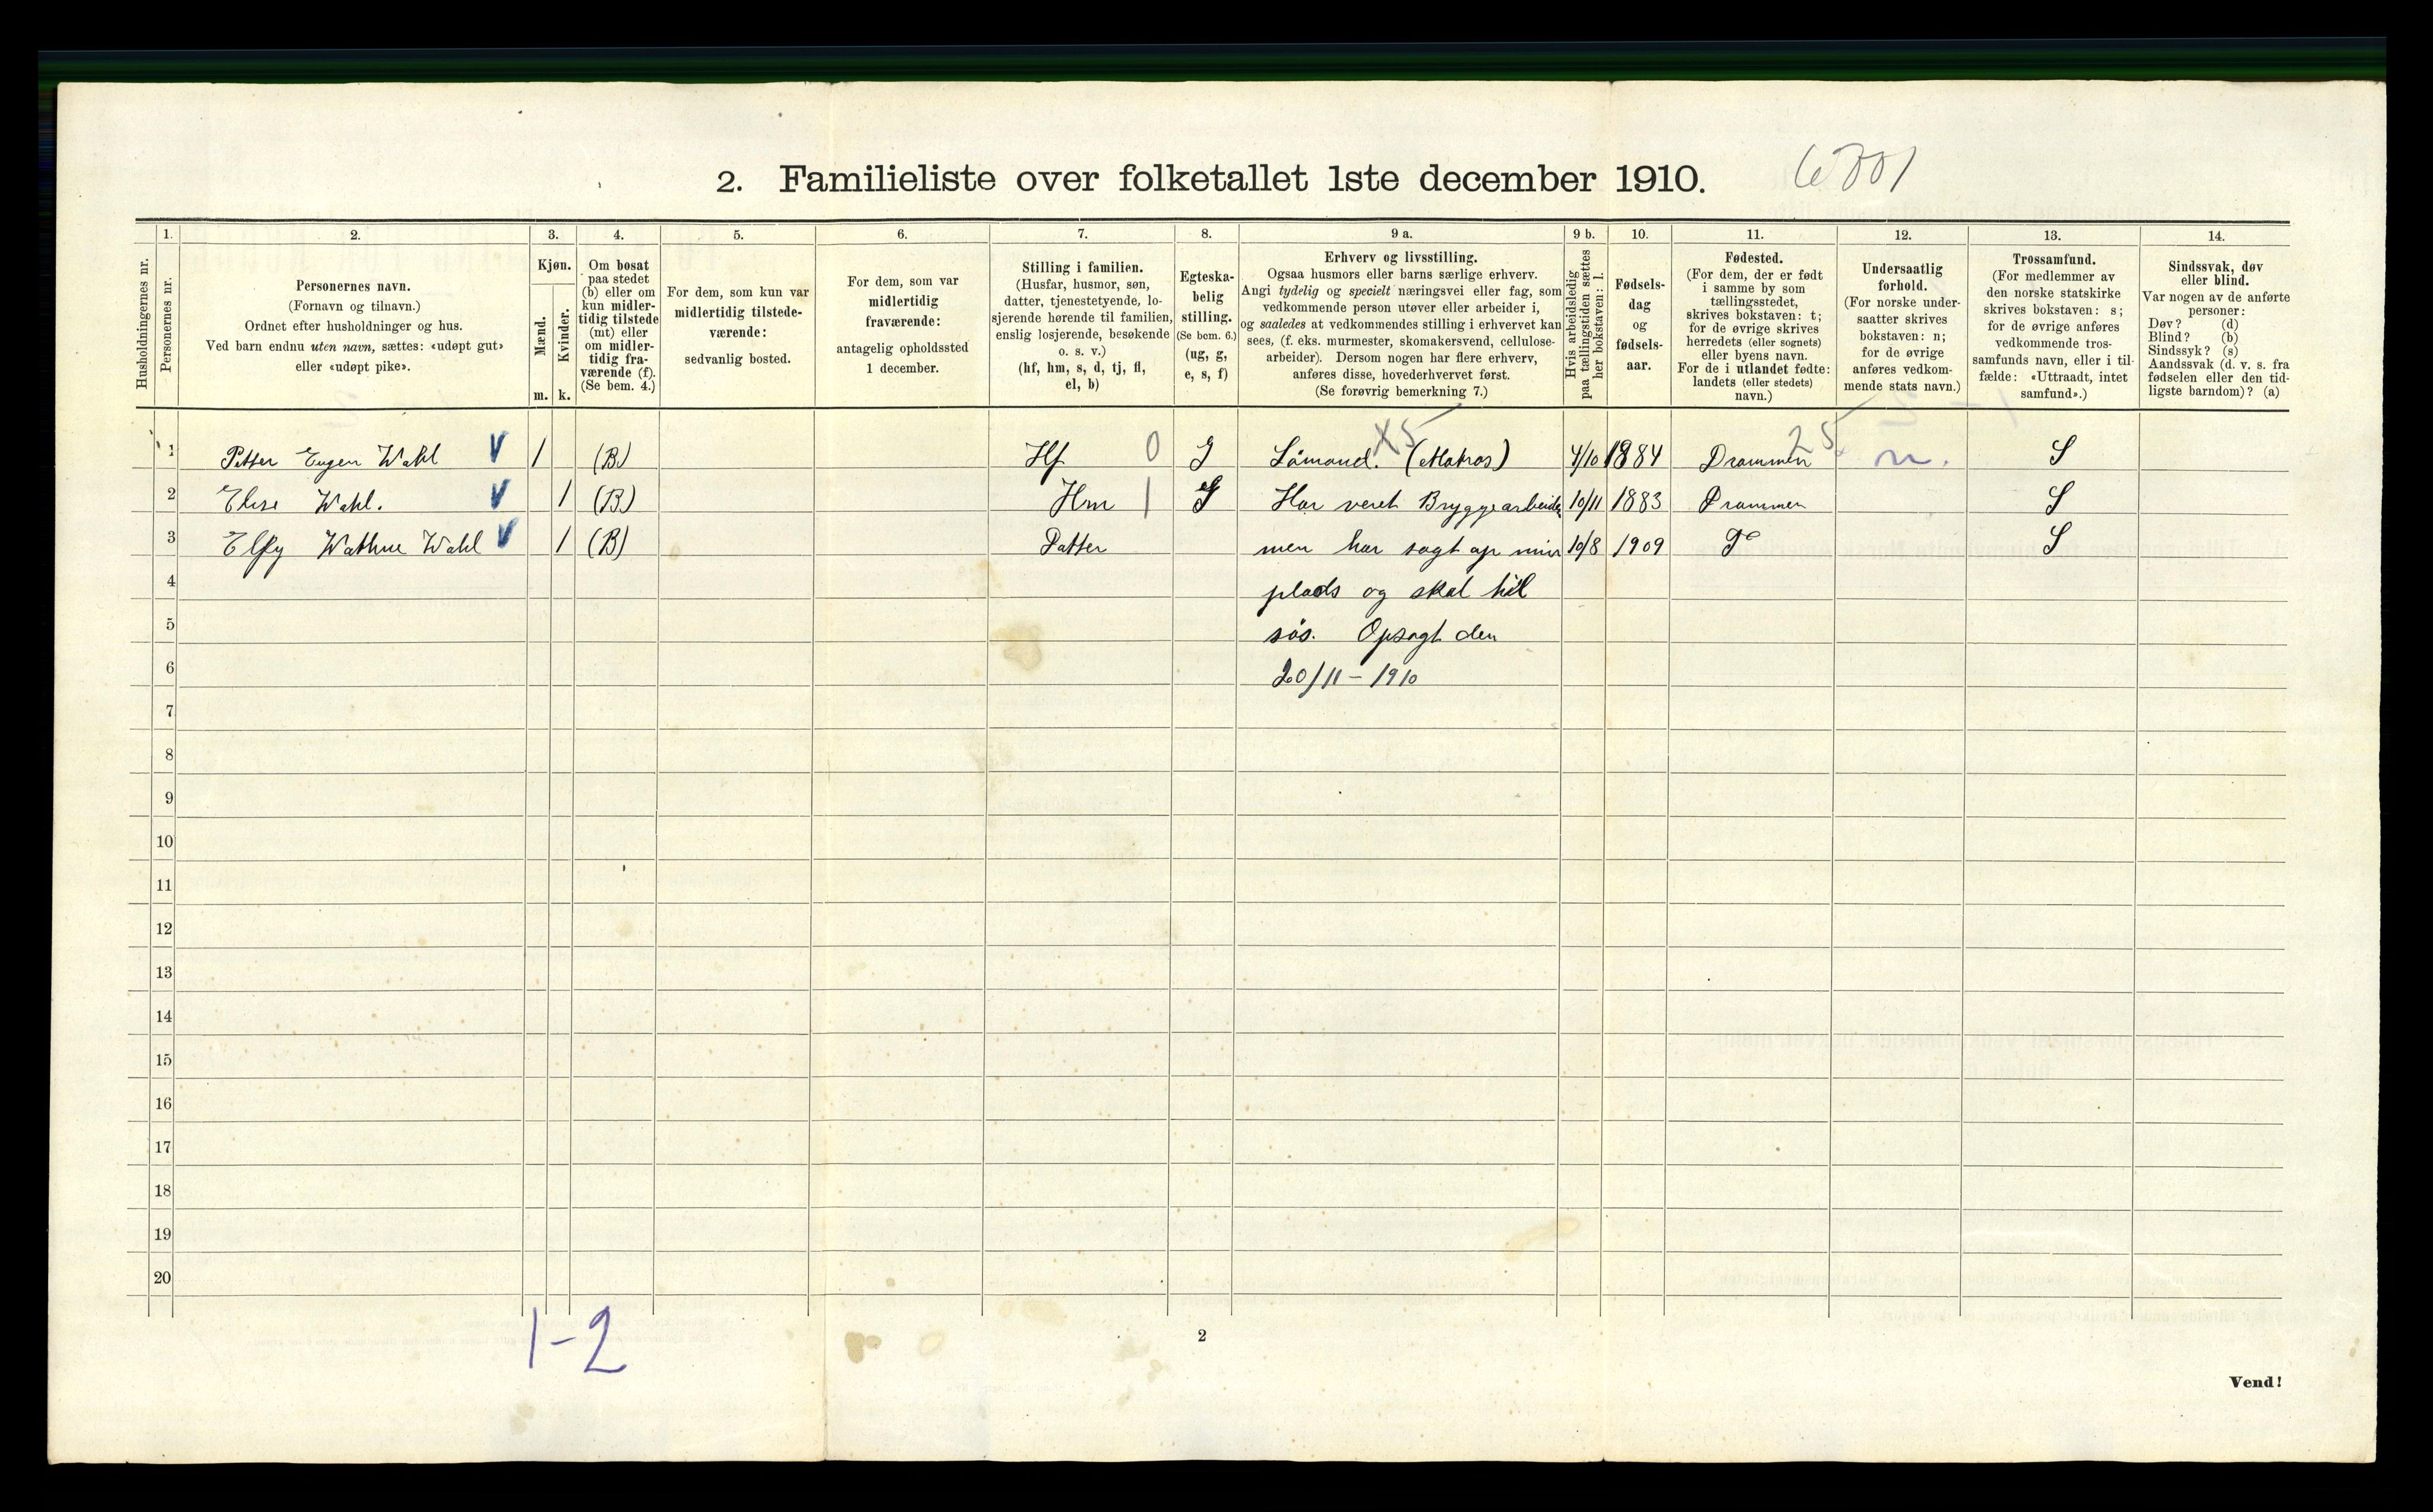 2. Familieliste over folketallet 1ste december 1910.
1. 2. 3. 4. 5. 6. 7. 8. 9 a. 9 b. 10. 11. 12. 13. 14.
Husholdningernes nr.
Personernes nr.
Personernes navn.
(Fornavn og tilnavn.)
Ordnet efter husholdninger og hus.
Ved barn endnu uten navn, sættes: «udøpt gut»
eller «udøpt pike».
Kjøn.
Mænd.
Kvinder.
m. k.
Om bosat
paa stedet
(b) eller om
kun midler-
tidig tilstede
(mt) eller
om midler-
tidig fra-
værende (f).
(Se bem. 4.)
For dem, som kun var
midlertidig tilstede-
værende:
sedvanlig bosted.
For dem, som var
midlertidig
fraværende:
antagelig opholdssted
1 december.
Stilling i familien.
(Husfar, husmor, søn,
datter, tjenestetyende, lo-
sjerende hørende til familien,
enslig losjerende, besøkende
o. s. v.)
(hf, hm, s, d, tj, fl,
el, b)
Egteska-
belig
stilling.
(Se bem. 6.)
(ug, g,
e, s, f)
Erhverv og livsstilling.
Ogsaa husmors eller barns særlige erhverv.
Angi tydelig og specielt næringsvei eller fag, som
vedkommende person utøver eller arbeider i,
og saaledes at vedkommendes stilling i erhvervet kan
sees, (f. eks. murmester, skomakersvend, cellulose-
arbeider). Dersom nogen har flere erhverv,
anføres disse, hovederhvervet først.
(Se forøvrig bemerkning 7.)
Hvis arbeidsledig
paa tællingstiden sættes
her bokstaven: l.
Fødsels-
dag
og
fødsels-
aar.
Fødested.
(For dem, der er født
i samme by som
tællingsstedet,
skrives bokstaven: t;
for de øvrige skrives
herredets (eller sognets)
eller byens navn.
For de i utlandet fødte:
landets (eller stedets)
navn.)
Undersaatlig
forhold.
(For norske under-
saatter skrives
bokstaven: n;
for de øvrige
anføres vedkom-
mende stats navn.)
Trossamfund.
(For medlemmer av
den norske statskirke
skrives bokstaven: s;
for de øvrige anføres
vedkommende tros-
samfunds navn, eller i til-
fælde: «Uttraadt, intet
samfund».)
Sindssvak, døv
eller blind.
Var nogen av de anførte
personer:
Døv? (d)
Blind? (b)
Sindssyk? (s)
Aandssvak (d. v. s. fra
fødselen eller den tid-
ligste barndom)? (a)
1 Petter Eugen Wahl V 1 (B) Hf 0 G Sömand. X5 (Matros) 4/10 1884 Drammen 25 n. S
2 Elise Wahl. V 1 (B) Hm 1 G Har veret Bryggearbeider 10/11 1883 Drammen S
3 Elfy Wathne Wahl V 1 (B) Datter men har sagt op min 10/8 1909 Do S
4 plads og skal til
5 sös. Opsagt den
6 20/11 - 1910
7
8
9
10
11
12
13
14
15
16
17
18
19
20
1-2
2
Vend!